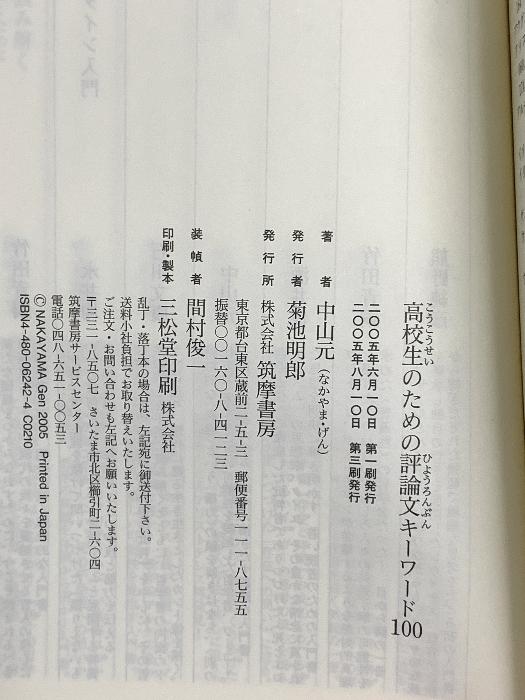 こうこうせい
ひようろんぶん
高校生のための評論文キーワード100
二〇〇五年六月一〇日 第一刷発行
二〇〇五年八月一〇日 第三刷発行
著者 中山元(なかやま・げん)
発行者 菊池明郎
発行所 株式会社 筑摩書房
東京都台東区蔵前二-五-三 郵便番号一一一-八七五五
振替〇〇一六〇-八-四一二三
装幀者 間村俊一
印刷・製本 三松堂印刷 株式会社
乱丁・落丁本の場合は、左記宛に御送付下さい。
送料小社負担でお取り替えいたします。
ご注文・お問い合わせも左記へお願いいたします。
〒三三一-八五〇七 さいたま市北区櫛引町二-六〇四
筑摩書房サービスセンター
電話〇四八-六五一-〇〇五三
© NAKAYAMA Gen 2005 Printed in Japan
ISBN4-480-06242-4 C0210